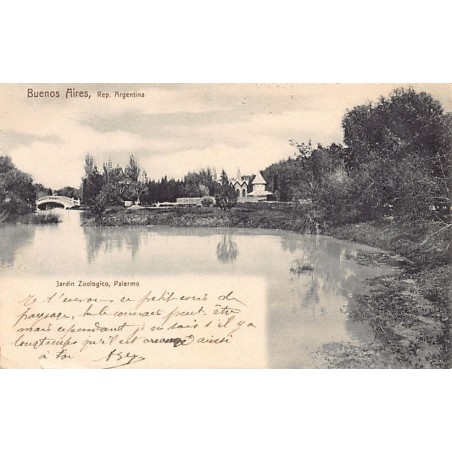 Buenos Aires, Rep. Argentina
Jardin Zoologico, Palermo
t'envoie ce petit coin de
paysage, tu le connais peut-être
mais cependant je sais s'il y a
longtemps qu'il est arrangé ainsi
à toi